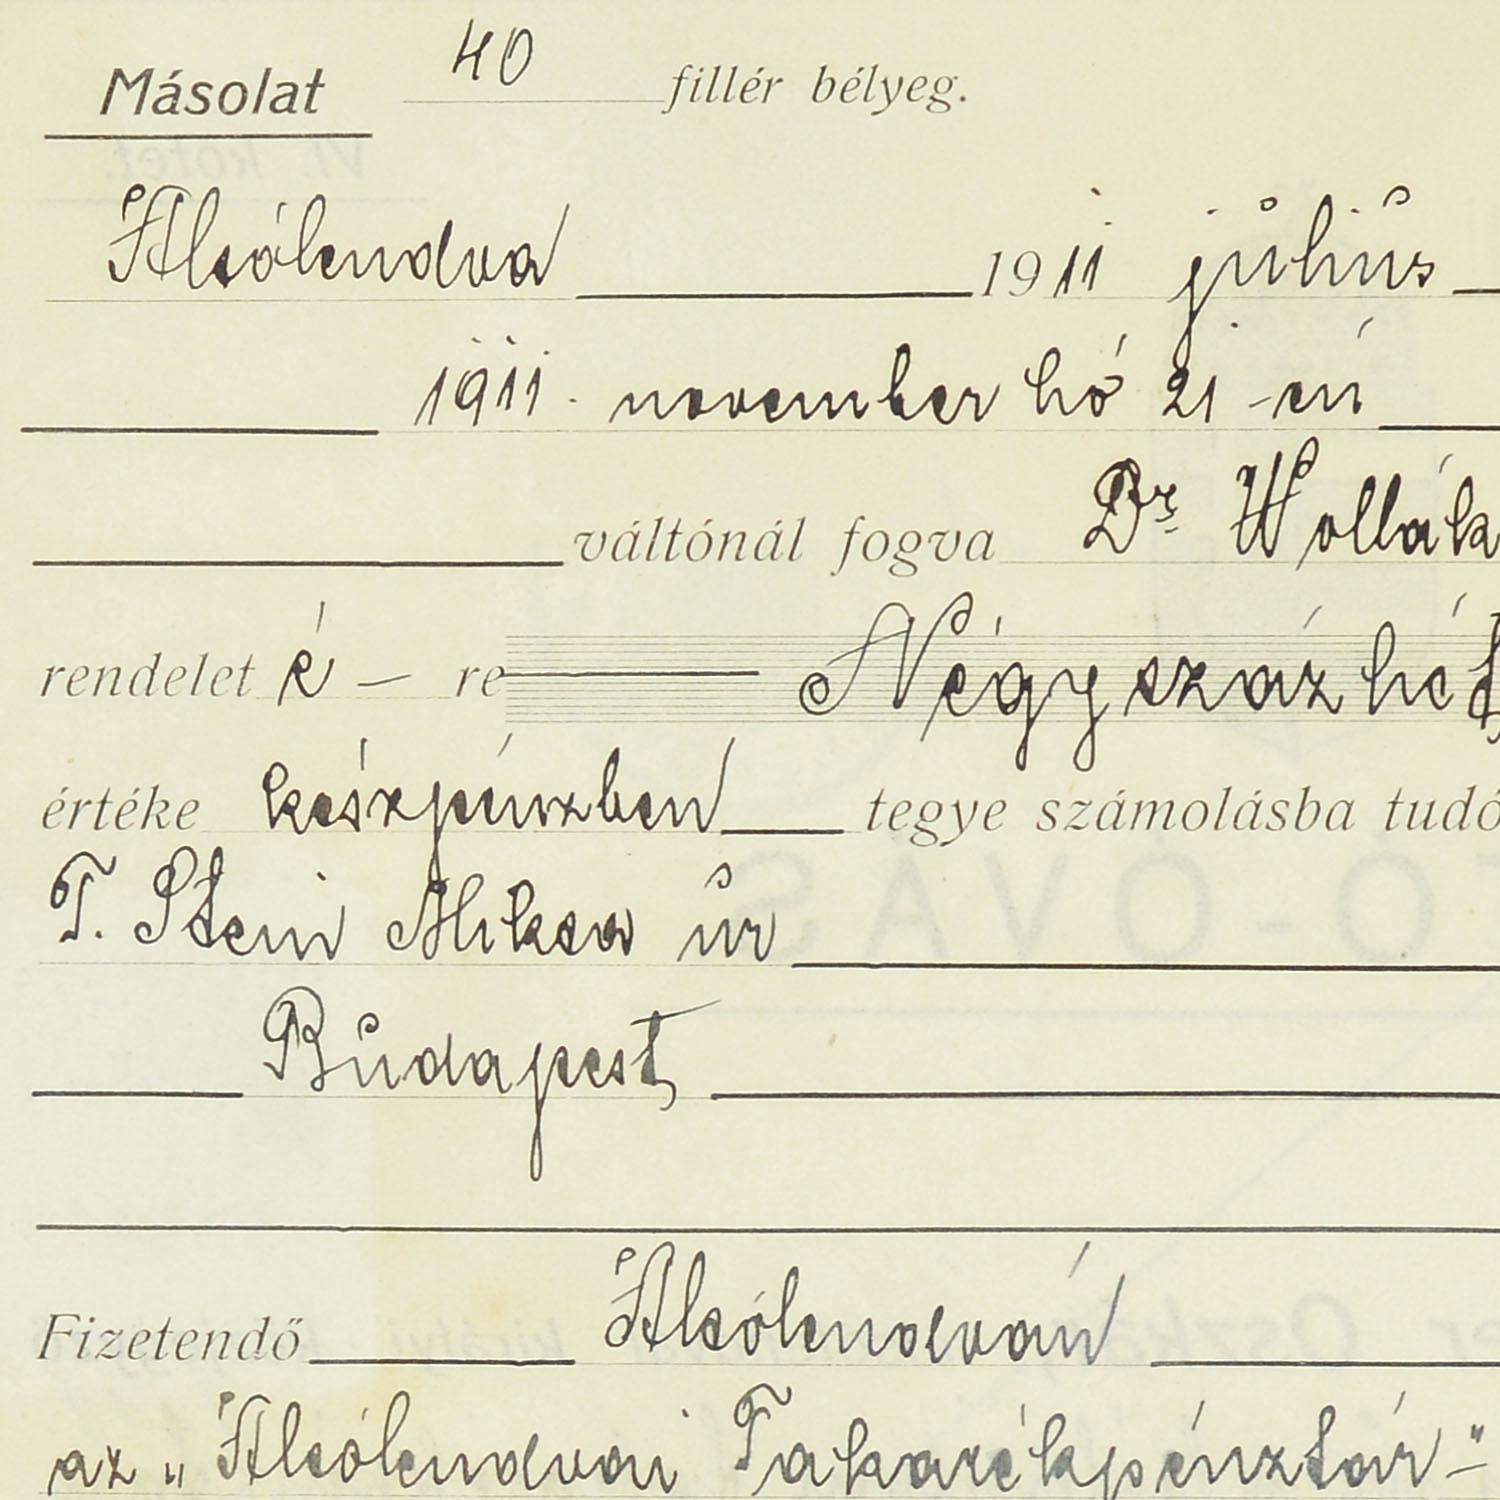 Másolat 40 fillér bélyeg.
Alsólendva 1911 július
1911. november hó 21-én
váltónál fogva Dr Wollák
rendelet é – re Négyszázhét
értéke készpénzben tegye számolásba tudó
T. Stein Miksa úr
Budapest
Fizetendő Alsólendván
az „Alsólendvai Takarékpénztár-"